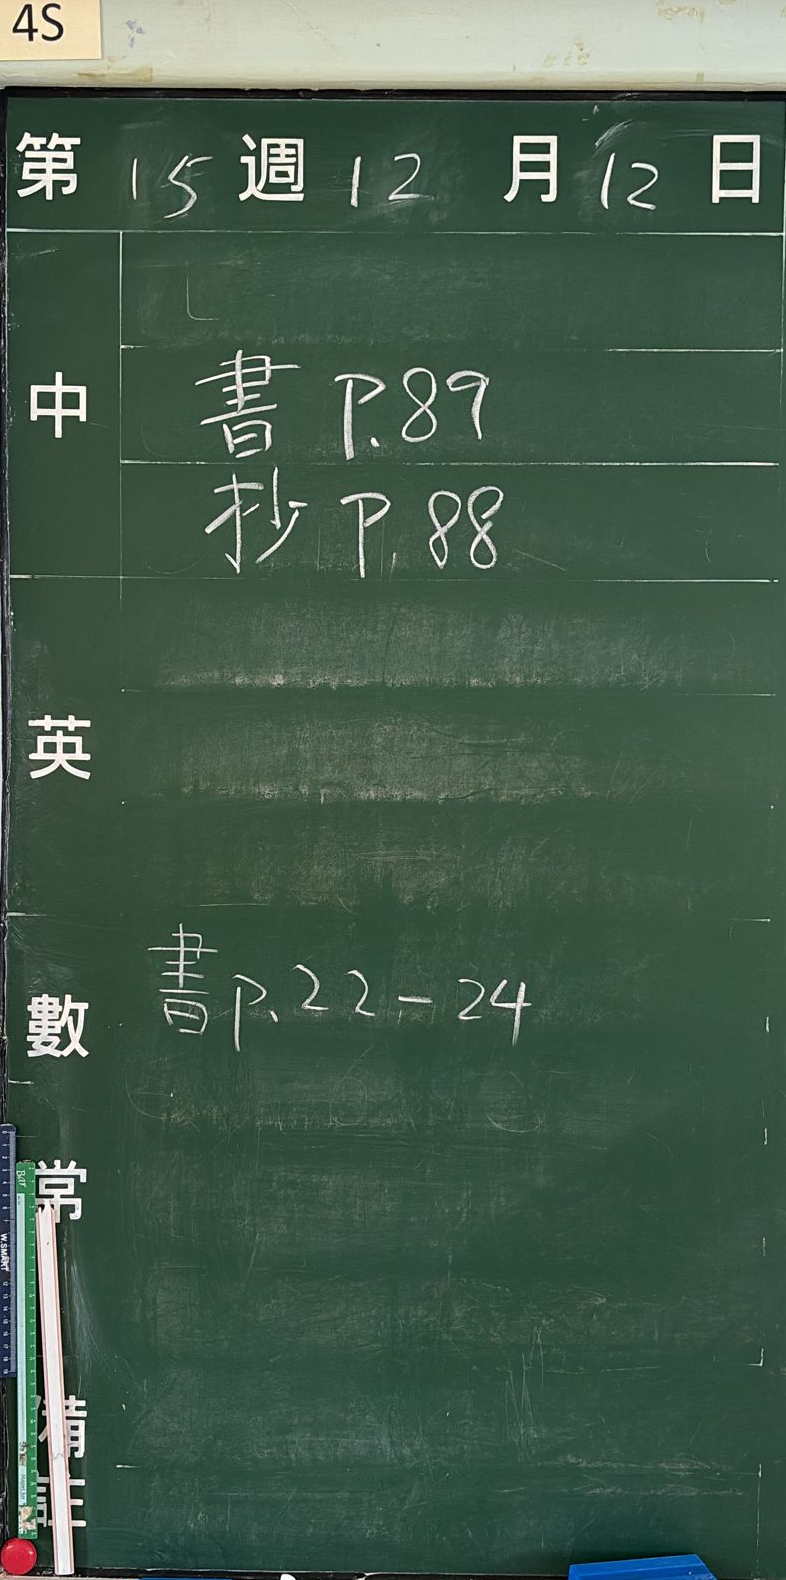 4S
第 15 週 12 月 12 日
中
書 P.89
抄 P.88
英
數
書 P.22-24
常
備註